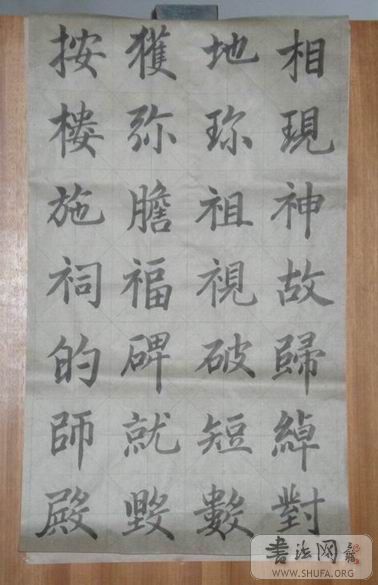 相現神故歸綽對
地珎祖視破短數
獲弥膽福碑就
按樓施祠的師殿
書法网
WWW.SHUFA.ORG